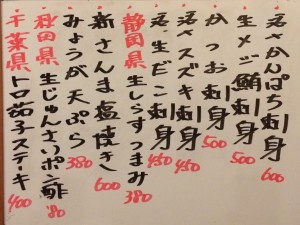 活さかんぱち刺身 600
生メジ鮪刺身 500
かつお刺身 500
活〆スズキ刺身 450
活、生だこ刺身 450
静岡県 生しらすつまみ 380
新さんま塩焼き 600
みょうが天ぷら 380
秋田県 生じゅんさいポン酢 80
千葉県 トロ茄子ステーキ 400